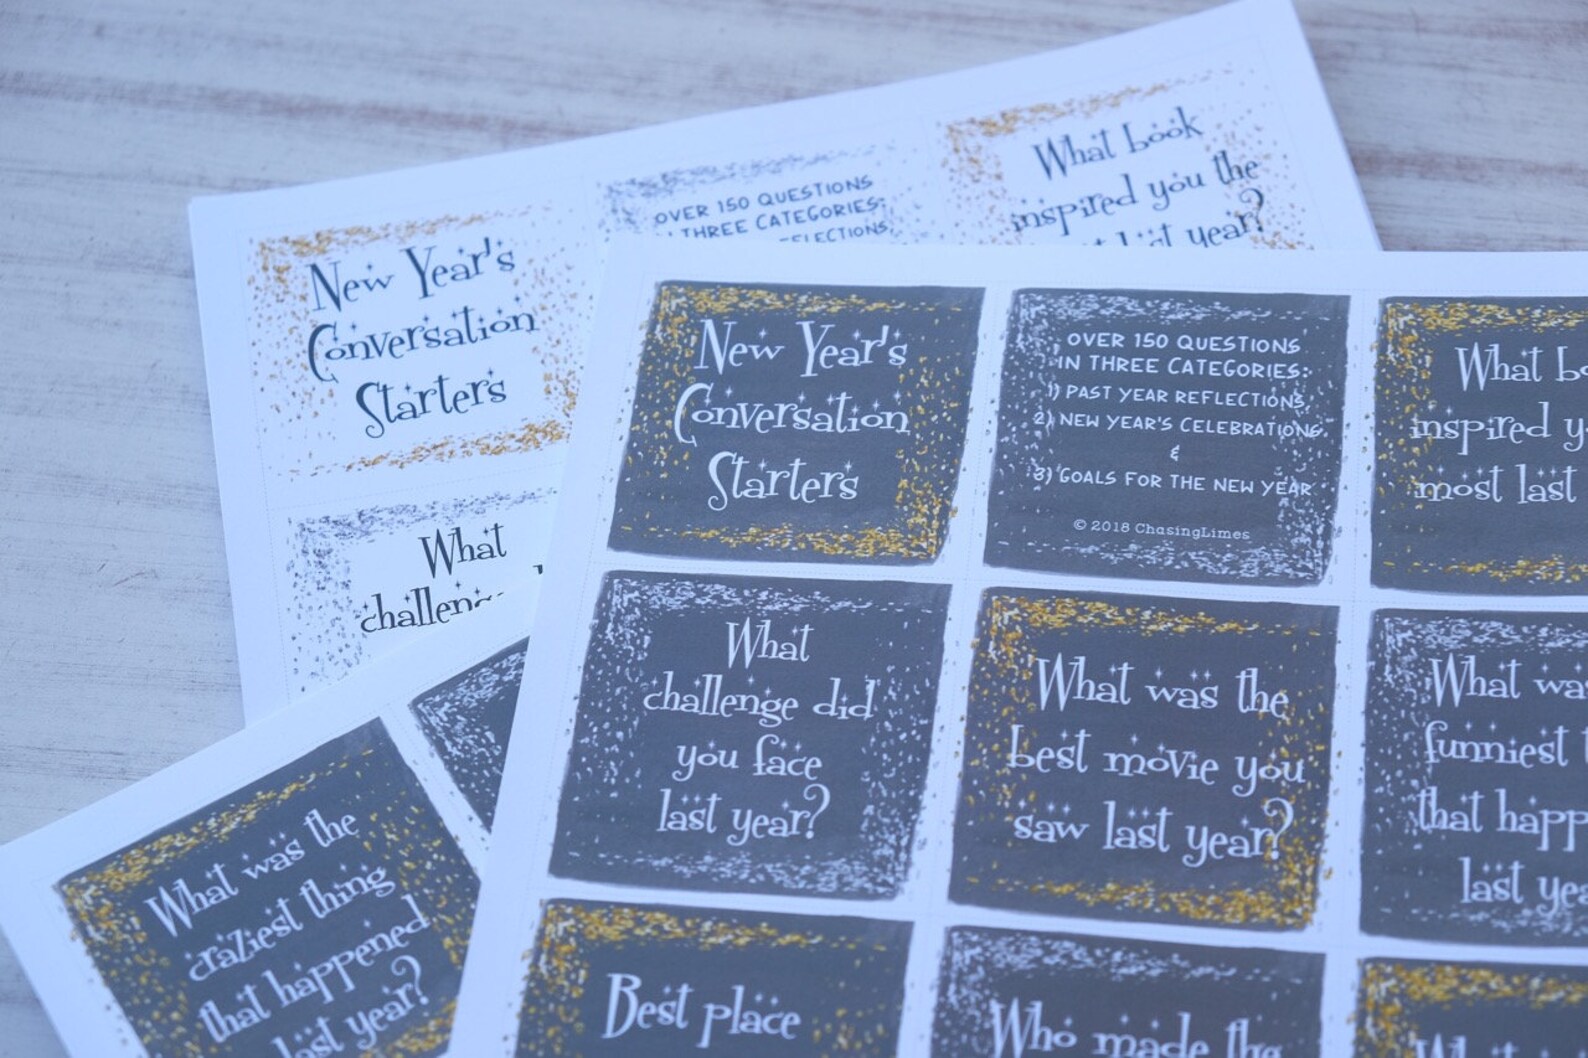 New Year's
Conversation
Starters
OVER 150 QUESTIONS
THREE CATEGORIES:
What book
inspired you the
last year?
What
New Year's
Conversation
Starters
OVER 150 QUESTIONS
IN THREE CATEGORIES:
1) PAST YEAR REFLECTIONS,
2) NEW YEAR'S CELEBRATIONS,
&
3) GOALS FOR THE NEW YEAR
© 2018 ChasingLimes
What
inspired
most last
What
challenge did
you face
last year?
What was the
best movie you
saw last year?
What was
funniest
that
last
What was the
craziest thing
that happened
last year?
Best place
Who made the
What